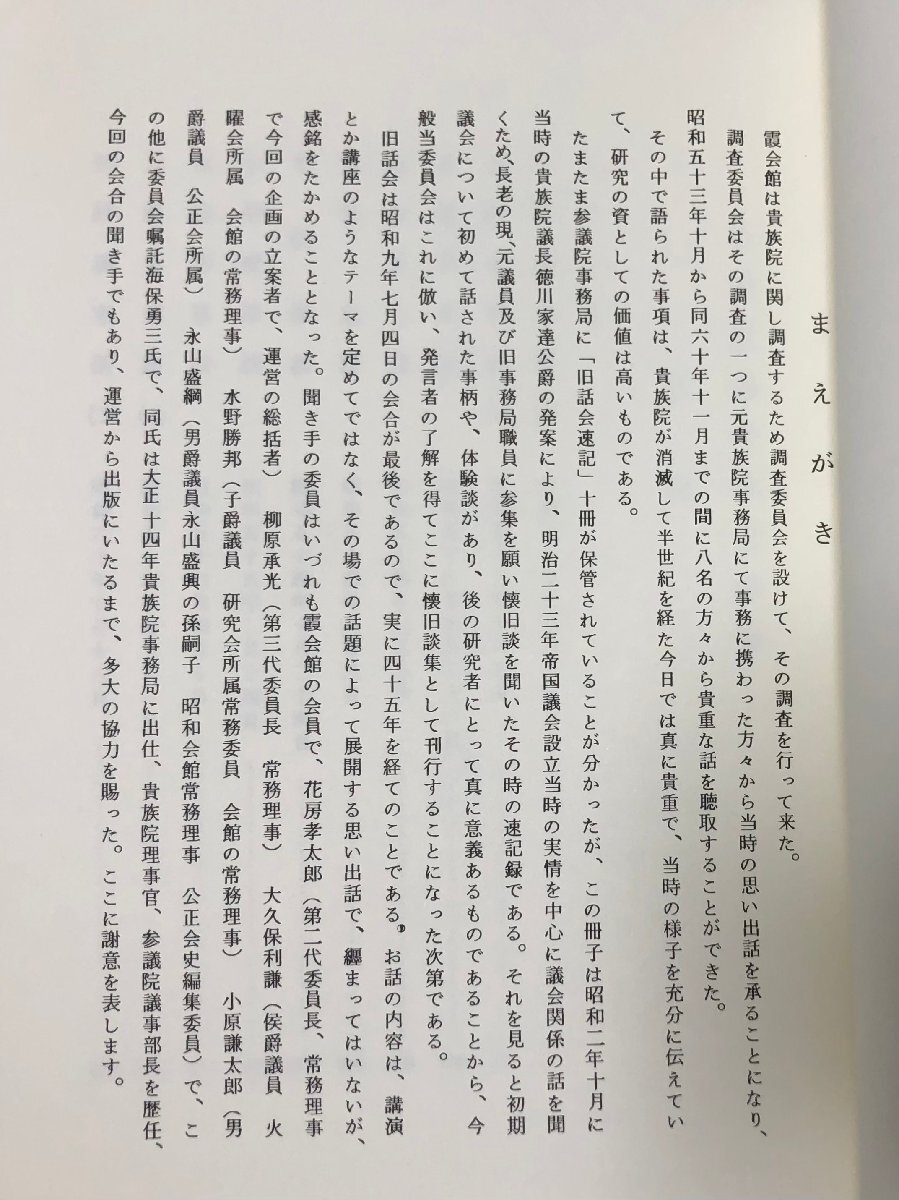 まえがき
霞会館は貴族院に関し調査するため調査委員会を設けて、その調査を行って来た。
調査委員会はその調査の一つに元貴族院事務局にて事務に携わった方々から当時の思い出話を承ることになり、
昭和五十三年十月から同六十年十一月までの間に八名の方々から貴重な話を聴取することができた。
その中で語られた事項は、貴族院が消滅して半世紀を経た今日では真に貴重で、当時の様子を充分に伝えてい
て、研究の資としての価値は高いものである。
たまたま参議院事務局に「旧話会速記」十冊が保管されていることが分かったが、この冊子は昭和二年十月に
当時の貴族院議長徳川家達公爵の発案により、明治二十三年帝国議会設立当時の実情を中心に議会関係の話を聞
くため、長老の現、元議員及び旧事務局職員に参集を願い懐旧談を聞いたその時の速記録である。それを見ると初期
議会について初めて話された事柄や、体験談があり、後の研究者にとって真に意義あるものであることから、今
般当委員会はこれに倣い、発言者の了解を得てここに懐旧談集として刊行することになった次第である。
旧話会は昭和九年七月四日の会合が最後であるので、実に四十五年を経てのことである。お話の内容は、講演
とか講座のようなテーマを定めてではなく、その場での話題によって展開する思い出話で、纒まってはいないが、
感銘をたかめることとなった。聞き手の委員はいづれも霞会館の会員で、花房孝太郎（第二代委員長、常務理事
で今回の企画の立案者で、運営の総括者）　柳原承光（第三代委員長　常務理事）　大久保利謙（侯爵議員　火
曜会所属　会館の常務理事）　水野勝邦（子爵議員　研究会所属常務委員　会館の常務理事）　小原謙太郎（男
爵議員　公正会所属）　永山盛綱（男爵議員永山盛興の孫嗣子　昭和会館常務理事　公正会史編集委員）で、こ
の他に委員会嘱託海保勇三氏で、同氏は大正十四年貴族院事務局に出仕、貴族院理事官、参議院議事部長を歴任、
今回の会合の聞き手でもあり、運営から出版にいたるまで、多大の協力を賜った。ここに謝意を表します。